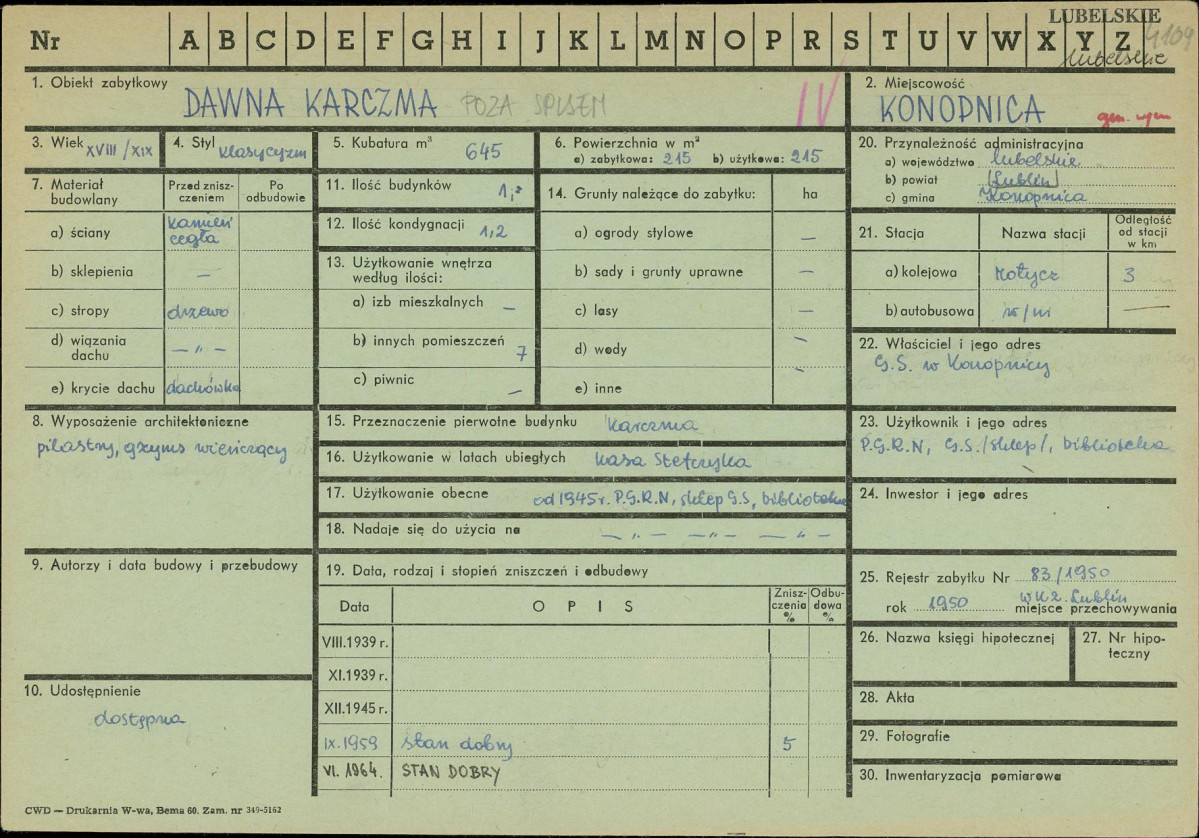 LUBELSKIE
Nr A B C D E F G H I J K L M N O P R S T U V W X Y Z 4109
lubelskie
1. Obiekt zabytkowy
DAWNA KARCZMA POZA SPISEM IV
2. Miejscowość
KONOPNICA
3. Wiek XVIII/XIX
4. Styl klasycyzm
5. Kubatura m³ 645
6. Powierzchnia w m²
a) zabytkowa: 215 b) użytkowa: 215
20. Przynależność administracyjna
a) województwo lubelskie
b) powiat (Lublin)
c) gmina Konopnica
7. Materiał budowlany
Przed zniszczeniem
Po odbudowie
a) ściany kamień cegła
b) sklepienia —
c) stropy drzewo
d) wiązania dachu — „ —
e) krycie dachu dachówka
11. Ilość budynków 1,
12. Ilość kondygnacji 1,2
13. Użytkowanie wnętrza według ilości:
a) izb mieszkalnych —
b) innych pomieszczeń 7
c) piwnic —
14. Grunty należące do zabytku: ha
a) ogrody stylowe —
b) sady i grunty uprawne —
c) lasy —
d) wody —
e) inne —
21. Stacja
Nazwa stacji
Odległość od stacji w km
a) kolejowa Motycz 3
b) autobusowa w/m —
22. Właściciel i jego adres
G.S. w Konopnicy
8. Wyposażenie architektoniczne
pilastry, gzyms wieńczący
15. Przeznaczenie pierwotne budynku karczma
16. Użytkowanie w latach ubiegłych kasa Stefczyka
17. Użytkowanie obecne od 1945 r. P.G.R.N, sklep G.S, biblioteka
18. Nadaje się do użycia na — „ — — „ — — „ —
23. Użytkownik i jego adres
P.G.R.N, G.S./sklep/, biblioteka
24. Inwestor i jego adres
9. Autorzy i data budowy i przebudowy
19. Data, rodzaj i stopień zniszczeń i odbudowy
Data
OPIS
Zniszczenia %
Odbudowa %
VIII.1939 r.
XI.1939 r.
XII.1945 r.
IX.1959 stan dobry 5
VI. 1964. STAN DOBRY
25. Rejestr zabytku Nr 83/1950
rok 1950 miejsce przechowywania WKZ. Lublin
26. Nazwa księgi hipotecznej
27. Nr hipoteczny
28. Akta
29. Fotografie
30. Inwentaryzacja pomiarowa
10. Udostępnienie
dostępna
CWD — Drukarnia W-wa, Bema 60. Zam. nr 349-5162